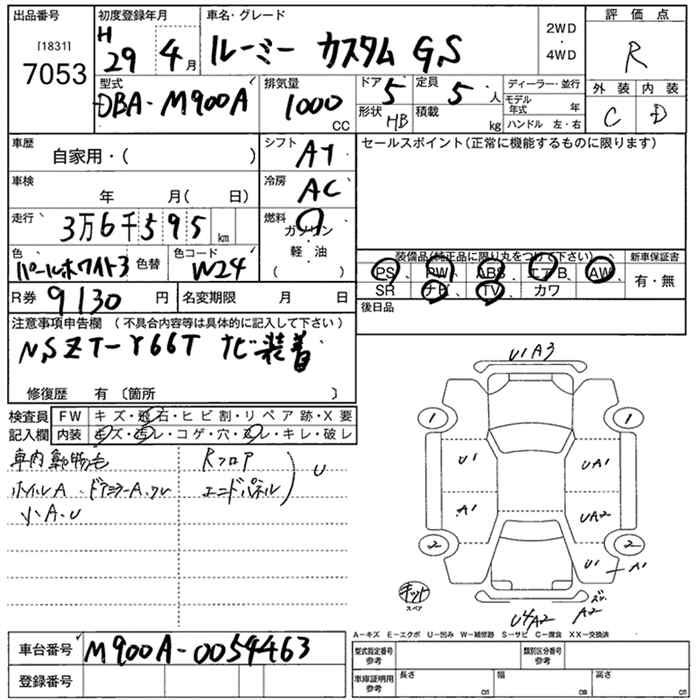 出品番号
[1831]
7053
初度登録年月
H 29 4月
車名・グレード
ルーミー カスタム GS
2WD
・
4WD
評価点
R
外装 内装
C D
型式
DBA-M900A
排気量
1000
CC
ドア
5
定員
5人
形状
HB
積載
kg
ディーラー・並行
モデル年式 年
ハンドル 左・右
車歴
自家用・( )
シフト
AT
セールスポイント(正常に機能するものに限ります)
車検
年 月( 日)
冷房
AC
走行
3万6千595km
燃料
ガソリン
・
軽・油
( )
色
パールホワイト3
色替
色コード
W24
装備品(純正品に限り丸をつけて下さい)
PS、PW、ABS、エアB、AW、
SR ナビ、TV、カワ
新車保証書
有・無
R券 9130円
名変期限 月 日
後日品
注意事項申告欄 (不具合内容等は具体的に記入して下さい)
NSZT-Y66T ナビ装着
修復歴 有 〔箇所 〕
検査員
記入欄
FW キズ・飛石・ヒビ割・リペア跡・X要
内装 キズ・汚レ・コゲ・穴・スレ・キレ・破レ
車内動物毛
ホイルA ドアミラーA.ワレ
小A.U
Rフロア
エンドパネル
U
U1A3
1 1
U1 UA1
A1 UA2
2 2
U1 A1
キット
スペア
U4A2
A2
A-キズ E-エクボ U-凹み W-補修跡 S-サビ C-腐食 XX-交換済
車台番号 M900A-0054463
登録番号
型式指定番号
参考
類別区分番号
参考
車庫証明用
参考
長さ
幅
高さ